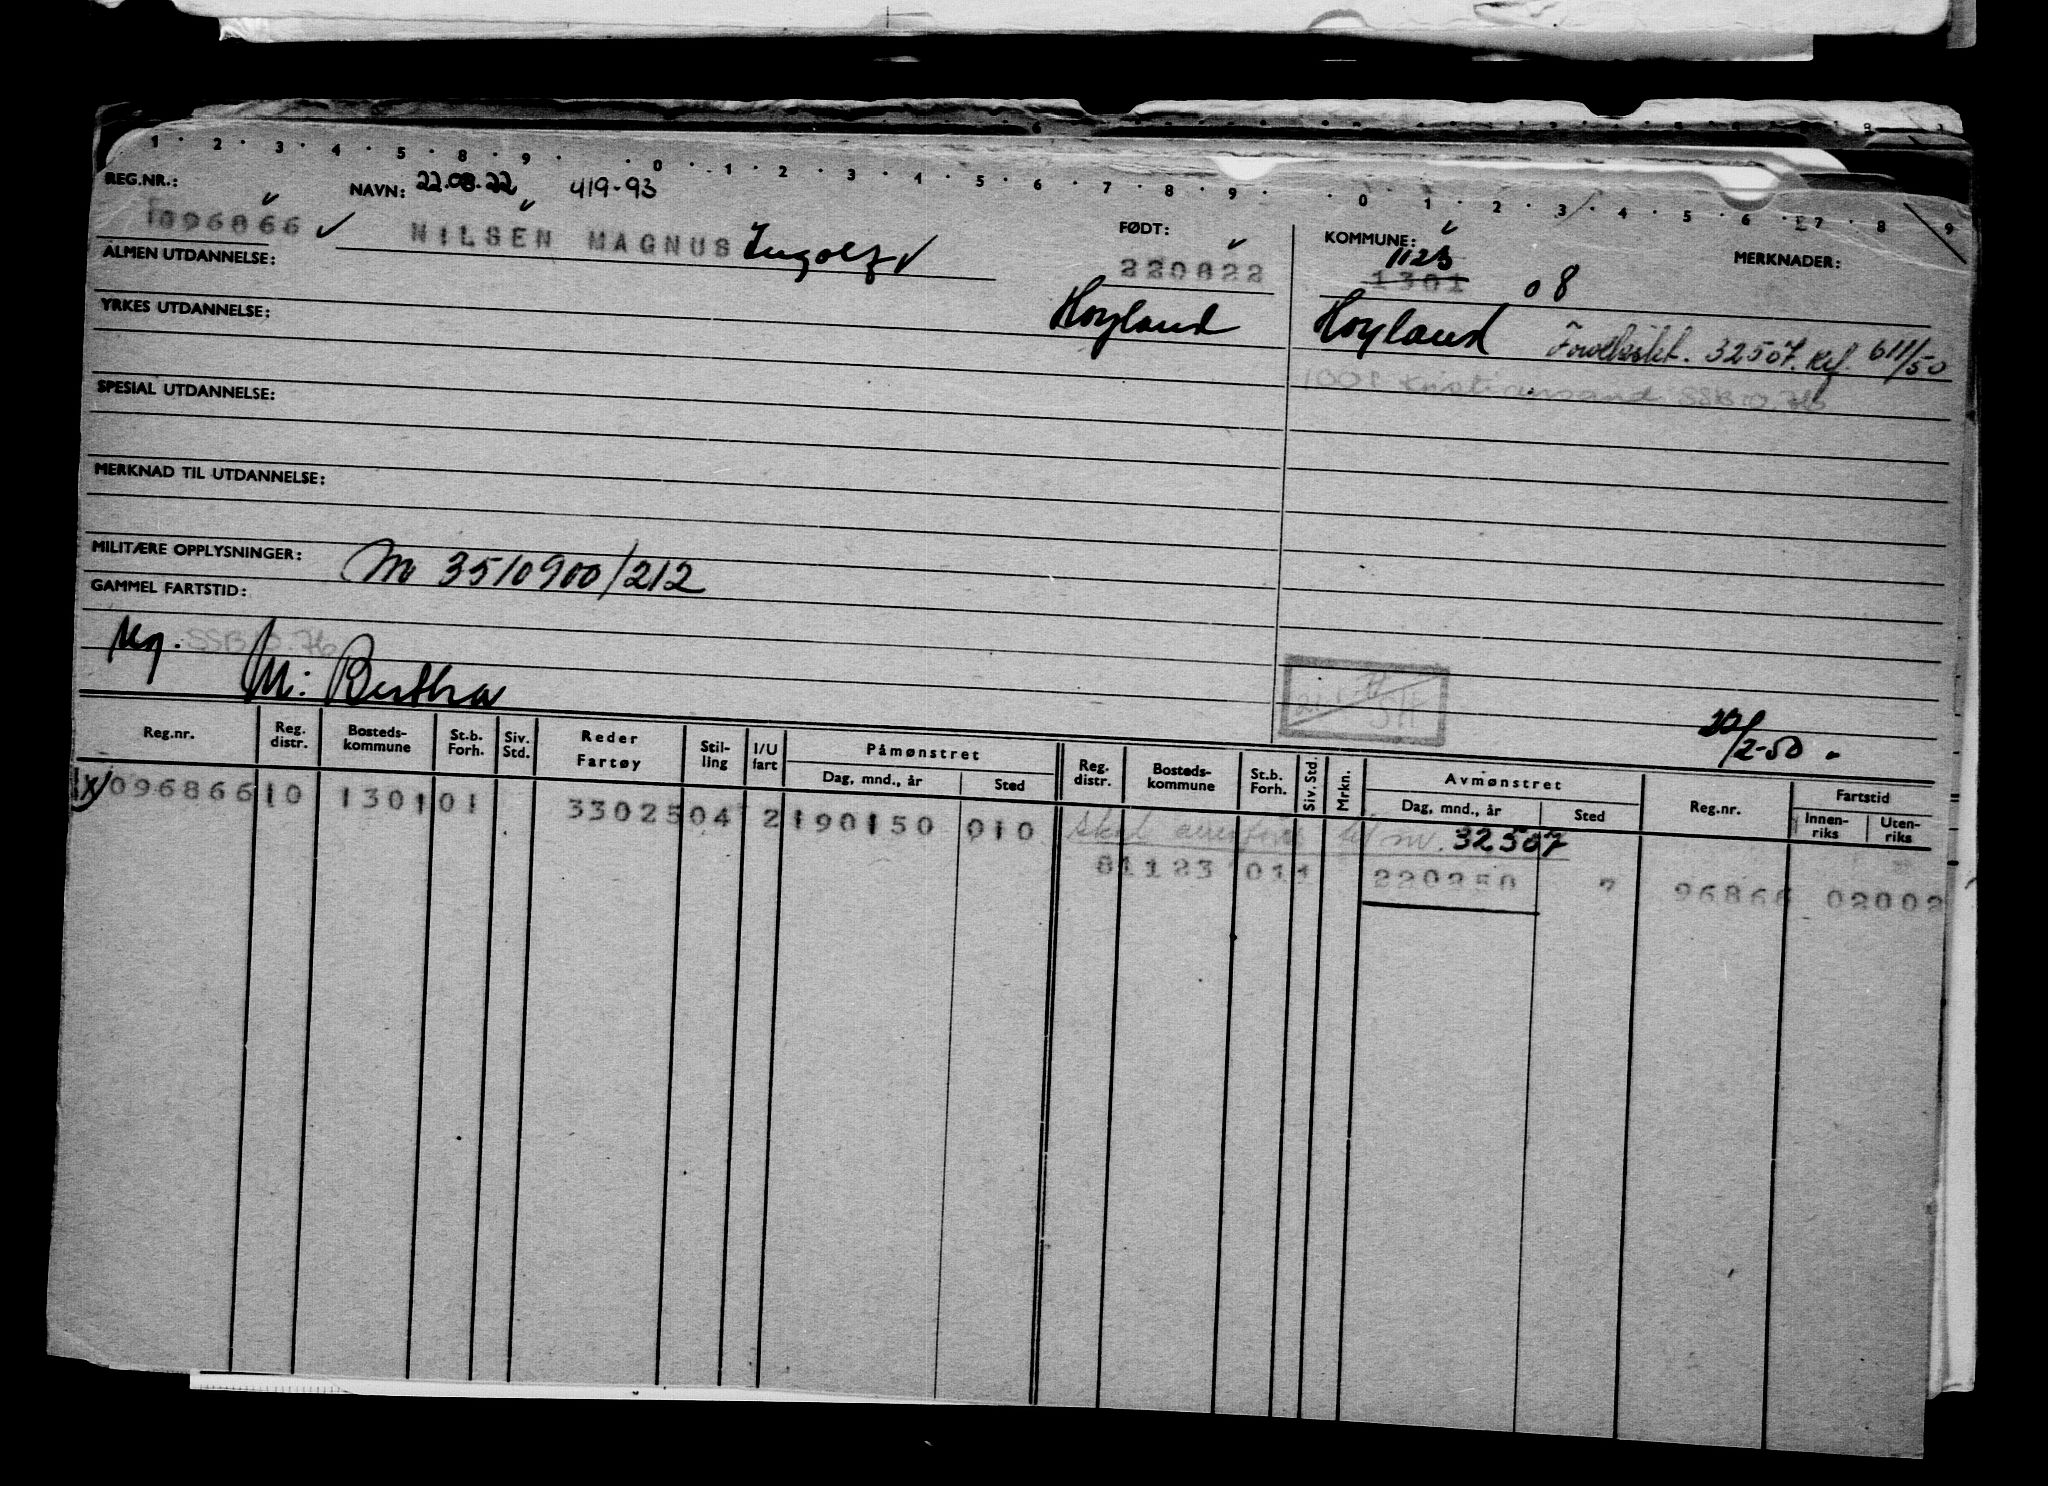 1 · 2 · 3 · 4 · 5 · 8 · 9 · · 0 · 1 · 2 · 3 · 4 · 5 · 6 · 7 · 8 · 9 · · 0 · 1 · 2 · 3 · 4 · 5 · 6 · 7 · 8 9
REG.NR.: NAVN: 22.08.22 419-93 FØDT: KOMMUNE: MERKNADER:
1096866 NILSEN MAGNUS Ingolf 220822 1123 1301 08
ALMEN UTDANNELSE:
Høyland Høyland 32507. 611/50
YRKES UTDANNELSE:
1001 Kristiansand SSB O. Hb
SPESIAL UTDANNELSE:
MERKNAD TIL UTDANNELSE:
MILITÆRE OPPLYSNINGER: M 3510900/212
GAMMEL FARTSTID:
SSB O. Hb
M: Bertha
22/2-50.
Reg.nr. Reg. distr. Bosteds-kommune St.b. Forh. Siv. Std. Reder Fartøy Stil-ling I/U fart Påmønstret Dag, mnd., år Sted Reg. distr. Bosteds-kommune St.b. Forh. Siv. Std. Mrkn. Avmønstret Dag, mnd., år Sted Reg.nr. Fartstid Innen-riks Uten-riks
1096866 10 1301 01 33025 04 2 190150 010 Skal til nr. 32507
8 1123 011 220250 7 96866 02002